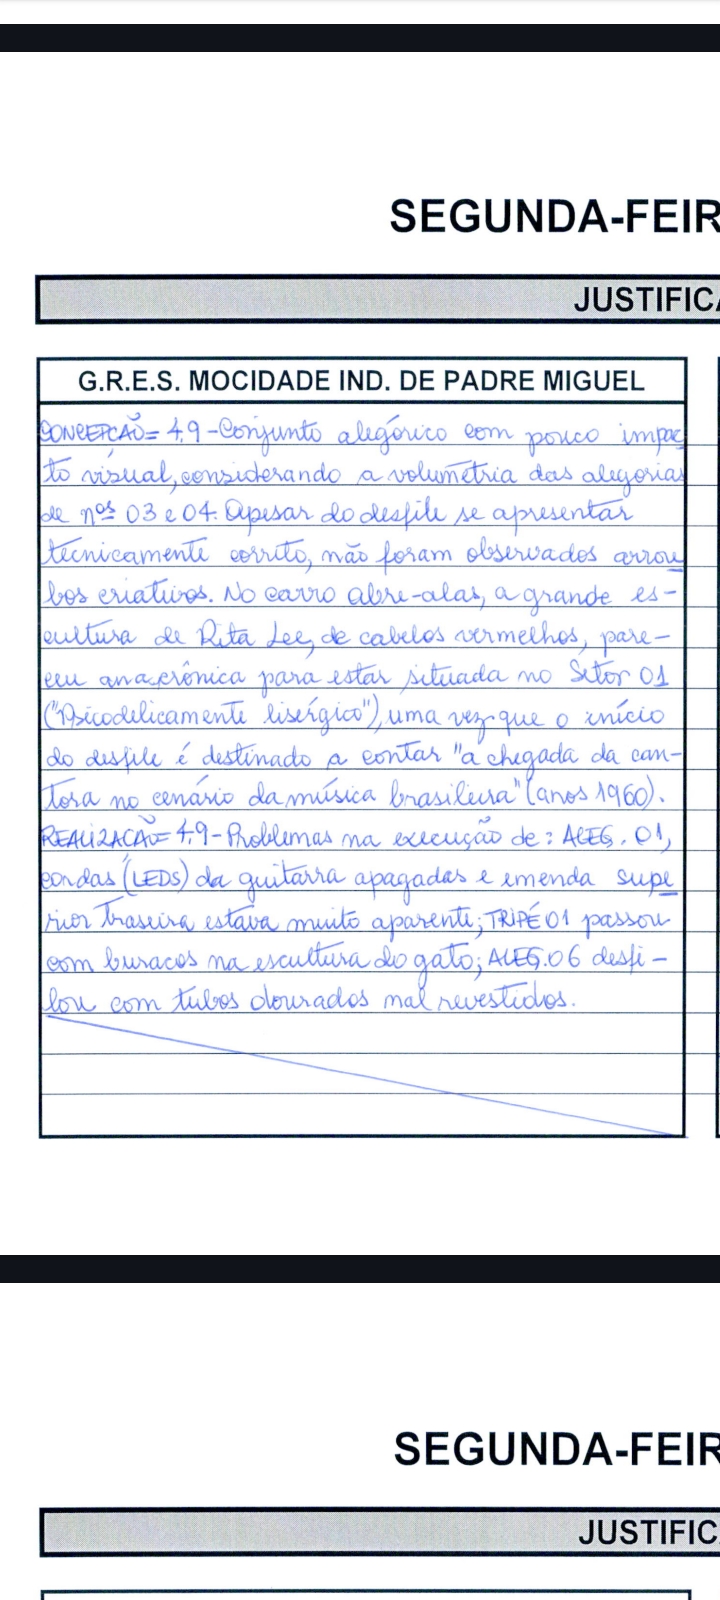 SEGUNDA-FEIR
JUSTIFICA
G.R.E.S. MOCIDADE IND. DE PADRE MIGUEL
CONCEPÇÃO= 4,9 - Conjunto alegórico com pouco impac
to visual, considerando a volumetria das alegorias
de nºs 03 e 04. Apesar do desfile se apresentar
tecnicamente correto, não foram observados arrou
bos criativos. No carro abre-alas, a grande es-
cultura de Rita Lee, de cabelos vermelhos, pare-
ceu anacrônica para estar situada no Setor 01
("Psicodelicamente lisérgico"), uma vez que o início
do desfile é destinado a contar "a chegada da can-
tora no cenário da música brasileira" (anos 1960).
REALIZAÇÃO= 4,9 - Problemas na execução de: ALEG. 01,
cordas (LEDS) da guitarra apagadas e emenda supe
rior traseira estava muito aparente; TRIPÉ 01 passou
com buracos na escultura do gato; ALEG. 06 desfi-
lou com tubos dourados mal revestidos.
SEGUNDA-FEIR
JUSTIFIC